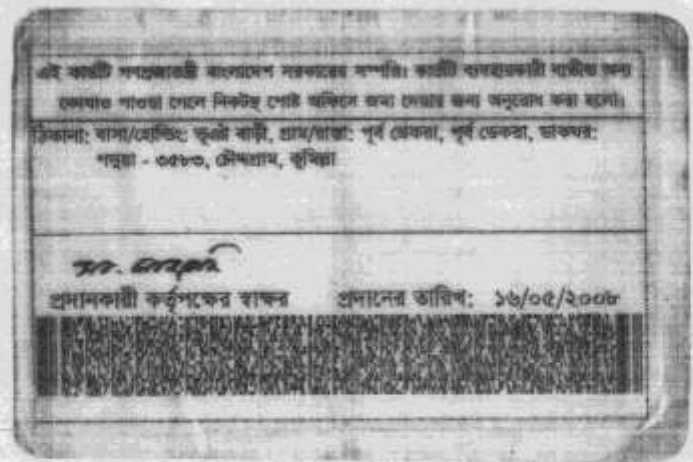 এই কার্ডটি গণপ্রজাতন্ত্রী বাংলাদেশ সরকারের সম্পত্তি। কার্ডটি ব্যবহারকারী ব্যতীত অন্য
কোথাও পাওয়া গেলে নিকটস্থ পোষ্ট অফিসে জমা দেয়ার জন্য অনুরোধ করা হলো।
ঠিকানা: বাসা/হোল্ডিং: ভূঞা বাড়ী, গ্রাম/রাস্তা: পূর্ব ডেকরা, পূর্ব ডেকরা, ডাকঘর:
পদুয়া - ৩৫৮৩, চৌদ্দগ্রাম, কুমিল্লা
প্রদানকারী কর্তৃপক্ষের স্বাক্ষর প্রদানের তারিখ: ১৬/০৫/২০০৮